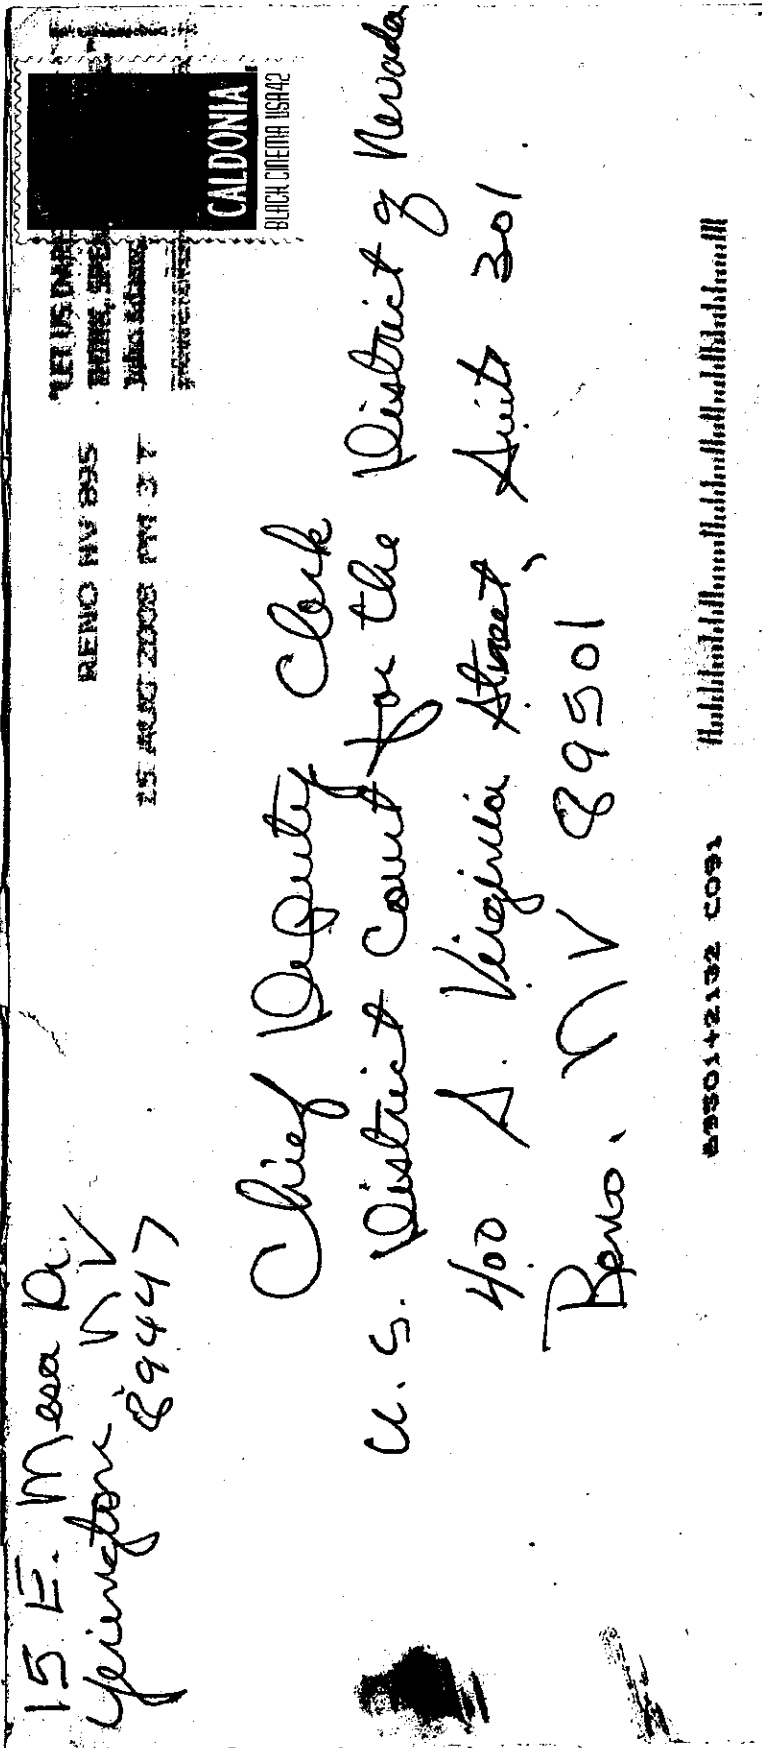 15 E. Mesa Dr.
Yerington, NV
89447
RENO NV 895
15 AUG 2008 PM 3 T
"LET US DARE
CALDONIA
BLACK CINEMA USA42
Chief Deputy Clerk
U.S. District Court for the District of Nevada
400 S. Virginia Street, Suite 301
Reno, NV 89501
89501+2132 C091